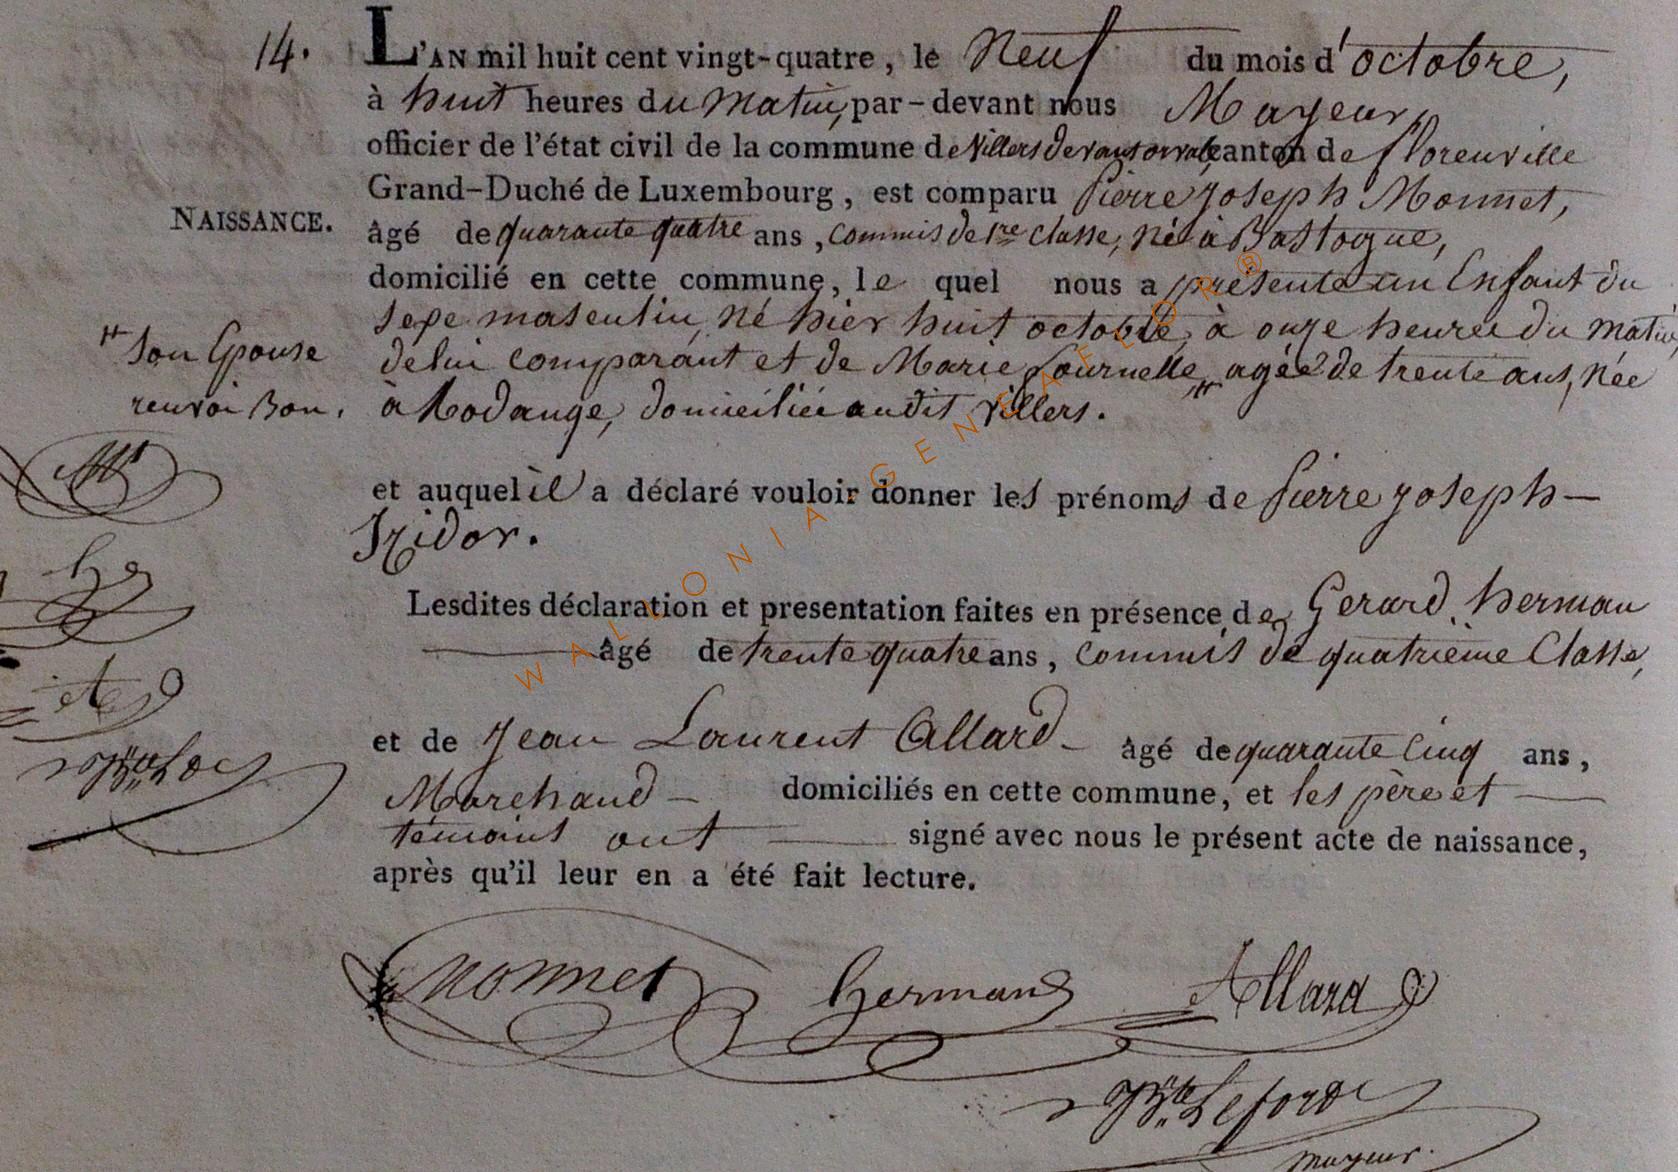 14.
L'AN mil huit cent vingt-quatre, le Neuf du mois d'octobre,
à huit heures du matin, par-devant nous Mayeur,
officier de l'état civil de la commune de Villers devant orval, canton de florenville
Grand-Duché de Luxembourg, est comparu Pierre Joseph Monnet,
NAISSANCE.
âgé de quarante quatre ans, commis de 1re classe, né à Bastogne,
domicilié en cette commune, le quel nous a présenté un Enfant du
sexe masculin, né hier huit octobre, à onze heures du matin,
de lui comparant et de Marie Fournelle, agée de trente ans, née
à Rodange, domiciliée audit villers.
son Epouse
renvoi Bon.
et auquel il a déclaré vouloir donner les prénoms de Pierre Joseph-
Izidor.
Lesdites déclaration et presentation faites en présence de Gerard herman
âgé de trente quatre ans, commis de quatrième Classe,
et de Jean Laurent Allard - âgé de quarante Cinq ans,
Marchand - domiciliés en cette commune, et les père et
témoins ont signé avec nous le présent acte de naissance,
après qu'il leur en a été fait lecture.
Monnet hermans Allard
Lefords
mayeur.
WALLONIA GENEAFLOR®